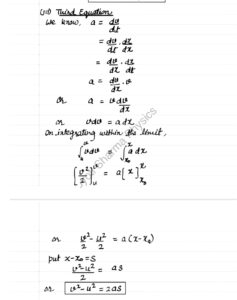 (iii) Third Equation
We know, a = dv/dt
= dv/dt . dx/dx
= dv/dx . dx/dt
a = dv/dx . v
or a = v dv/dx
or vdv = a dx
On integrating within the limit,
∫ᵤᵛ vdv = ∫ₓ₀ˣ a dx
[v²/2]ᵤᵛ = a[x]ₓ₀ˣ
or v²/2 - u²/2 = a(x-x₀)
put x-x₀=S
v²-u²/2 = as
or v²-u² = 2as